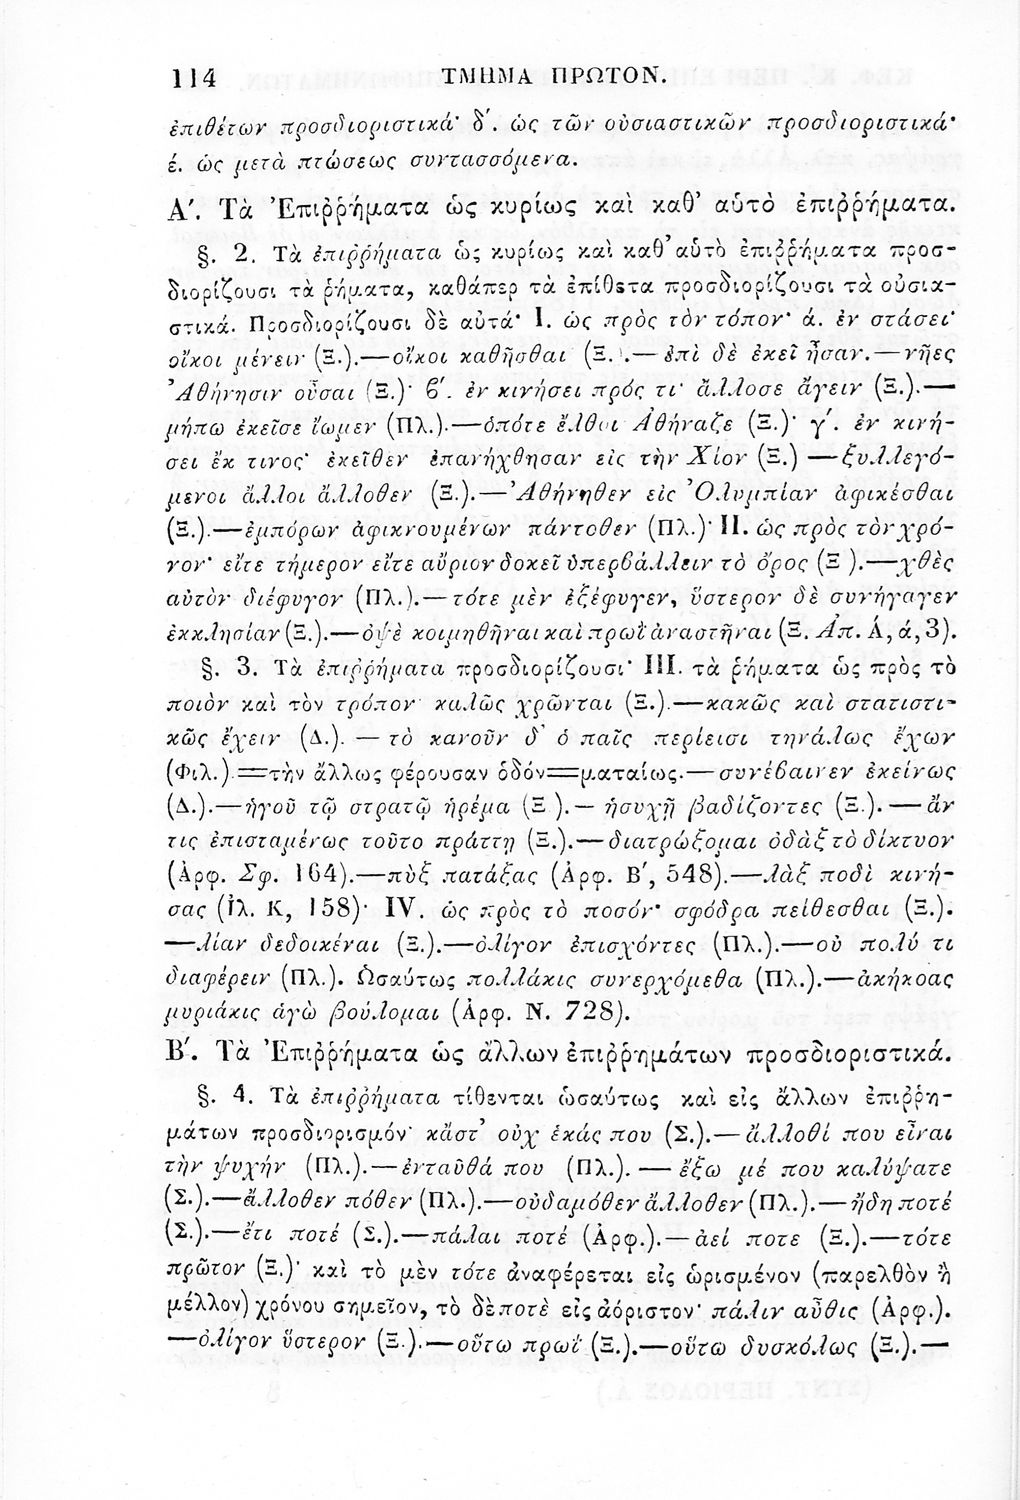 114 ΤΜΗΜΑ ΠΡΩΤΟΝ.
ἐπιθέτων προσδιοριστικά· δ΄. ὡς τῶν οὐσιαστικῶν προσδιοριστικά·
έ. ὡς μετὰ πτώσεως συντασσόμενα.
Α΄. Τὰ Ἐπιῤῥήματα ὡς κυρίως καὶ καθ’ αὑτὸ ἐπιῤῥήματα.
§. 2. Τὰ ἐπιῤῥήματα ὡς κυρίως καὶ καθ’ αὑτὸ ἐπιῤῥήματα προσ-
διορίζουσι τὰ ῥήματα, καθάπερ τὰ ἐπίθετα προσδιορίζουσι τὰ οὐσια-
στικά. Προσδιορίζουσι δὲ αὐτά· I. ὡς πρὸς τὸν τόπον· ά. ἐν στάσει·
οἴκοι μένειν (Ξ.).—οἴκοι καθῆσθαι (Ξ.).— ἐπὶ δὲ ἐκεῖ ἦσαν.—νῆες
Ἀθήνησιν οὖσαι (Ξ.)· β΄. ἐν κινήσει πρός τι· ἄλλοσε ἄγειν (Ξ.).—
μήπω ἐκεῖσε ἴωμεν (Πλ.).—ὁπότε ἔλθοι Ἀθήναζε (Ξ.)· γ΄. ἐν κινή-
σει ἔκ τινος· ἐκεῖθεν ἐπανήχθησαν εἰς τὴν Χίον (Ξ.) —ξυλλεγό-
μενοι ἄλλοι ἄλλοθεν (Ξ.).—Ἀθήνηθεν εἰς Ὀλυμπίαν ἀφικέσθαι
(Ξ.).—ἐμπόρων ἀφικνουμένων πάντοθεν (Πλ.)· II. ὡς πρὸς τὸν χρό-
νον· εἴτε τήμερον εἴτε αὔριον δοκεῖ ὑπερβάλλειν τὸ ὄρος (Ξ ).—χθὲς
αὐτὸν διέφυγον (Πλ.).—τότε μὲν ἐξέφυγεν, ὕστερον δὲ συνήγαγεν
ἐκκλησίαν (Ξ.).—ὀψὲ κοιμηθῆναι καὶ πρωῒ ἀναστῆναι (Ξ. Ἀπ. Ά, ά, 3).
§. 3. Τὰ ἐπιῤῥήματα προσδιορίζουσι· III. τὰ ῥήματα ὡς πρὸς τὸ
ποιὸν καὶ τὸν τρόπον· καλῶς χρῶνται (Ξ.).—κακῶς καὶ στατιστι-
κῶς ἔχειν (Δ.). — τὸ κανοῦν δ’ ὁ παῖς περίεισι τηνάλως ἔχων
(Φιλ.).=τὴν ἄλλως φέρουσαν ὁδόν=ματαίως.—συνέβαινεν ἐκείνως
(Δ.).—ἡγοῦ τῷ στρατῷ ἠρέμα (Ξ ).— ἡσυχῇ βαδίζοντες (Ξ.).—ἄν
τις ἐπισταμένως τοῦτο πράττῃ (Ξ.).—διατρώξομαι ὀδὰξ τὸ δίκτυον
(Ἀρφ. Σφ. 164).—πὺξ πατάξας (Ἀρφ. Β΄, 548).—λὰξ ποδὶ κινή-
σας (Ἰλ. Κ, 158)· IV. ὡς πρὸς τὸ ποσόν· σφόδρα πείθεσθαι (Ξ.).
—λίαν δεδοικέναι (Ξ.).—ὀλίγον ἐπισχόντες (Πλ.).—οὐ πολύ τι
διαφέρειν (Πλ.). Ὡσαύτως πολλάκις συνερχόμεθα (Πλ.).—ἀκήκοας
μυριάκις ἁγὼ βούλομαι (Ἀρφ. Ν. 728).
Β΄. Τὰ Ἐπιῤῥήματα ὡς ἄλλων ἐπιῤῥημάτων προσδιοριστικά.
§. 4. Τὰ ἐπιῤῥήματα τίθενται ὡσαύτως καὶ εἰς ἄλλων ἐπιῤῥη-
μάτων προσδιορισμόν· κἄστ’ οὐχ ἑκάς που (Σ.).—ἄλλοθί που εἶναι
τὴν ψυχήν (Πλ.).—ἐνταῦθά που (Πλ.). — ἔξω μέ που καλύψατε
(Σ.).—ἄλλοθεν πόθεν (Πλ.).—οὐδαμόθεν ἄλλοθεν (Πλ.).—ἤδη ποτέ
(Σ.).—ἔτι ποτέ (Σ.).—πάλαι ποτέ (Ἀρφ.).—ἀεί ποτε (Ξ.).—τότε
πρῶτον (Ξ.)· καὶ τὸ μὲν τότε ἀναφέρεται εἰς ὡρισμένον (παρελθὸν ἢ
μέλλον) χρόνου σημεῖον, τὸ δὲ ποτὲ εἰς ἀόριστον· πάλιν αὖθις (Ἀρφ.).
—ὀλίγον ὕστερον (Ξ.).—οὕτω πρωῒ (Ξ.).—οὕτω δυσκόλως (Ξ.).—